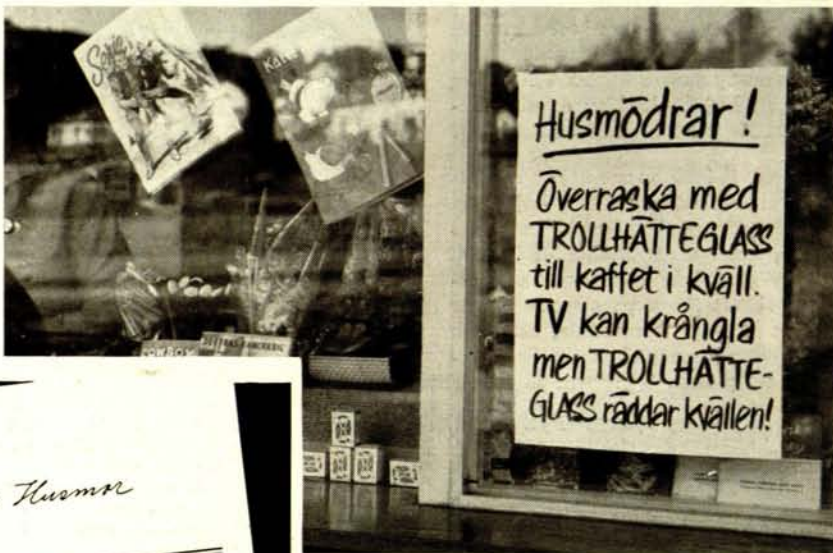 Husmödrar!
Överraska med
TROLLHÄTTEGLASS
till kaffet i kväll.
TV kan krångla
men TROLLHÄTTE-
GLASS räddar kvällen!
COWBOY
Husmor